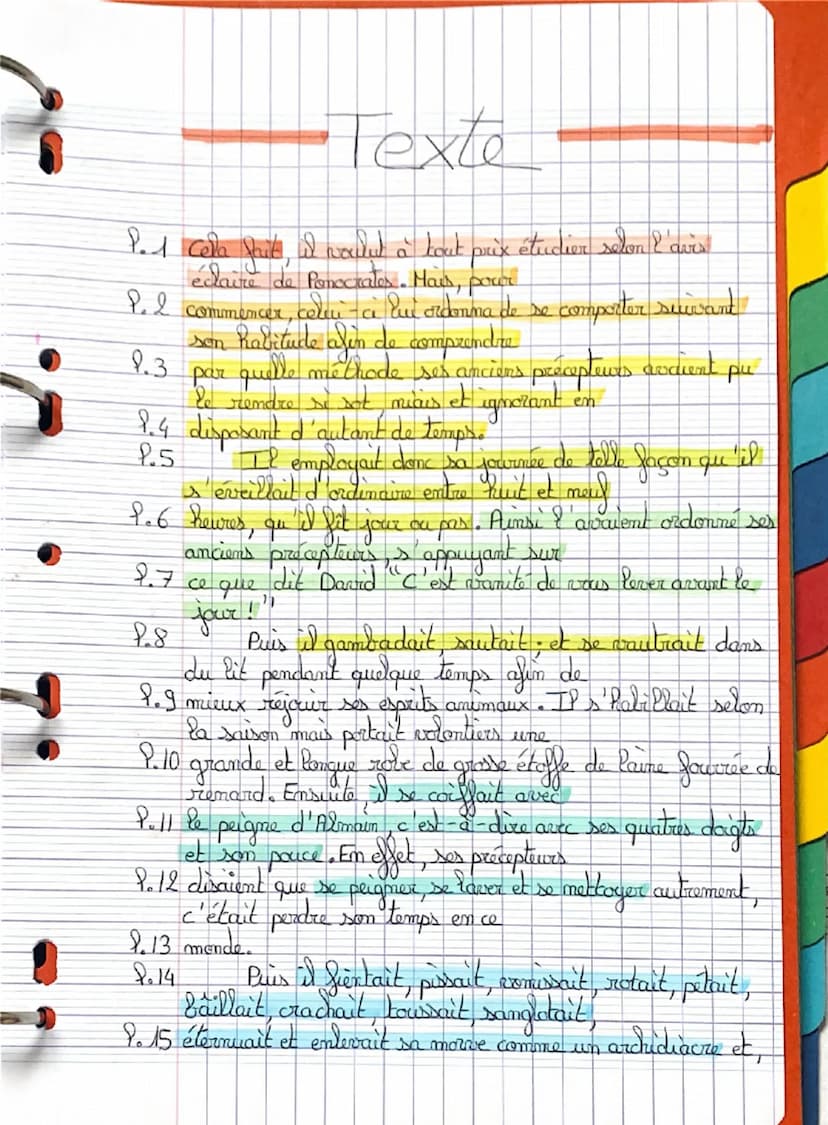 Texte
P.1 Cela fait, il voulut à tout prix étudier selon l'avis
éclaire de Ponocrates. Mais, pour
P.2 commencer, celui-ci lui ordonna de se comporter suivant
son habitude afin de comprendre
P.3 par quelle méthode ses anciens précepteurs avaient pu
le rendre si sot, niais et ignorant en
P.4 disposant d'autant de temps.
P.5 Il employait donc sa journée de telle façon qu'il
s'éveillait d'ordinaire entre huit et neuf
P.6 heures, qu'il fît jour ou pas. Ainsi l'avaient ordonné ses
anciens précepteurs, s'appuyant sur
P.7 ce que dit David "C'est vanité de vous lever avant le
jour!"
P.8 Puis il gambadait, sautait, et se vautrait dans
du lit pendant quelque temps afin de
P.9 mieux réjouir ses esprits animaux. Il s'habillait selon
la saison mais portait volontiers une
P.10 grande et longue robe de grosse étoffe de laine fourrée de
renard. Ensuite, il se coiffait avec
P.11 le peigne d'Almain, c'est-à-dire avec ses quatres doigts
et son pouce. En effet, ses précepteurs
P.12 disaient que se peigner, se laver et se nettoyer autrement,
c'était perdre son temps en ce
P.13 monde.
P.14 Puis il fientait, pissait, vomissait, rotait, pétait,
bâillait, crachait, toussait, sanglotait,
P.15 éternuait et enlevait sa morve comme un archidiacre et,